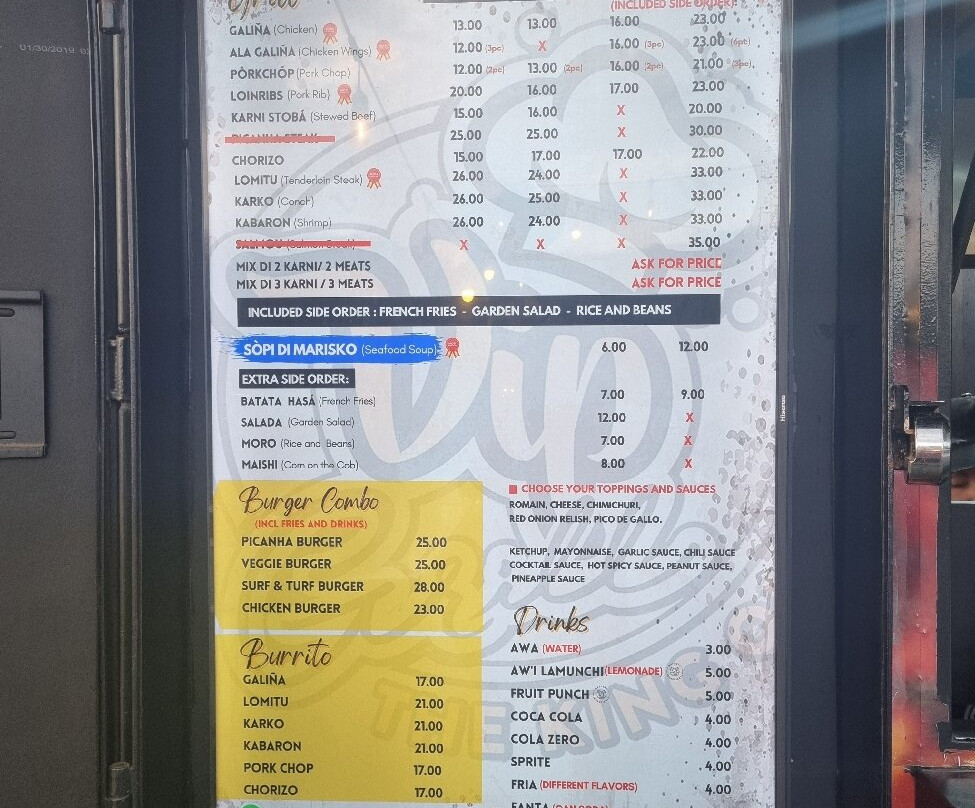 01/30/2019
Grill
(INCLUDED SIDE ORDER)
GALIÑA (Chicken) 13.00 13.00 16.00 23.00
ALA GALIÑA (Chicken Wings) 12.00 (3pc) X 16.00 (3pc) 23.00 (6pc)
PÒRKCHÓP (Pork Chop) 12.00 (2pc) 13.00 (2pc) 16.00 (2pc) 21.00 (3pc)
LOINRIBS (Pork Rib) 20.00 16.00 17.00 23.00
KARNI STOBÁ (Stewed Beef) 15.00 16.00 X 20.00
PICANHA STEAK 25.00 25.00 X 30.00
CHORIZO 15.00 17.00 17.00 22.00
LOMITU (Tenderloin Steak) 26.00 24.00 X 33.00
KARKO (Conch) 26.00 25.00 X 33.00
KABARON (Shrimp) 26.00 24.00 X 33.00
SALMOU (Salmon Steak) X X X 35.00
MIX DI 2 KARNI/ 2 MEATS ASK FOR PRICE
MIX DI 3 KARNI / 3 MEATS ASK FOR PRICE
INCLUDED SIDE ORDER : FRENCH FRIES - GARDEN SALAD - RICE AND BEANS
SÒPI DI MARISKO (Seafood Soup) 6.00 12.00
EXTRA SIDE ORDER:
BATATA HASÁ (French Fries) 7.00 9.00
SALADA (Garden Salad) 12.00 X
MORO (Rice and Beans) 7.00 X
MAISHI (Corn on the Cob) 8.00 X
Burger Combo
(INCL FRIES AND DRINKS)
PICANHA BURGER 25.00
VEGGIE BURGER 25.00
SURF & TURF BURGER 28.00
CHICKEN BURGER 23.00
Burrito
GALIÑA 17.00
LOMITU 21.00
KARKO 21.00
KABARON 21.00
PORK CHOP 17.00
CHORIZO 17.00
CHOOSE YOUR TOPPINGS AND SAUCES
ROMAIN, CHEESE, CHIMICHURI,
RED ONION RELISH, PICO DE GALLO.
KETCHUP, MAYONNAISE, GARLIC SAUCE, CHILI SAUCE
COCKTAIL SAUCE, HOT SPICY SAUCE, PEANUT SAUCE,
PINEAPPLE SAUCE
Drinks
AWA (WATER) 3.00
AW'I LAMUNCHI (LEMONADE) 5.00
FRUIT PUNCH 5.00
COCA COLA 4.00
COLA ZERO 4.00
SPRITE 4.00
FRIA (DIFFERENT FLAVORS) 4.00
FANTA
Vip
Grill
THE KING
Hisense